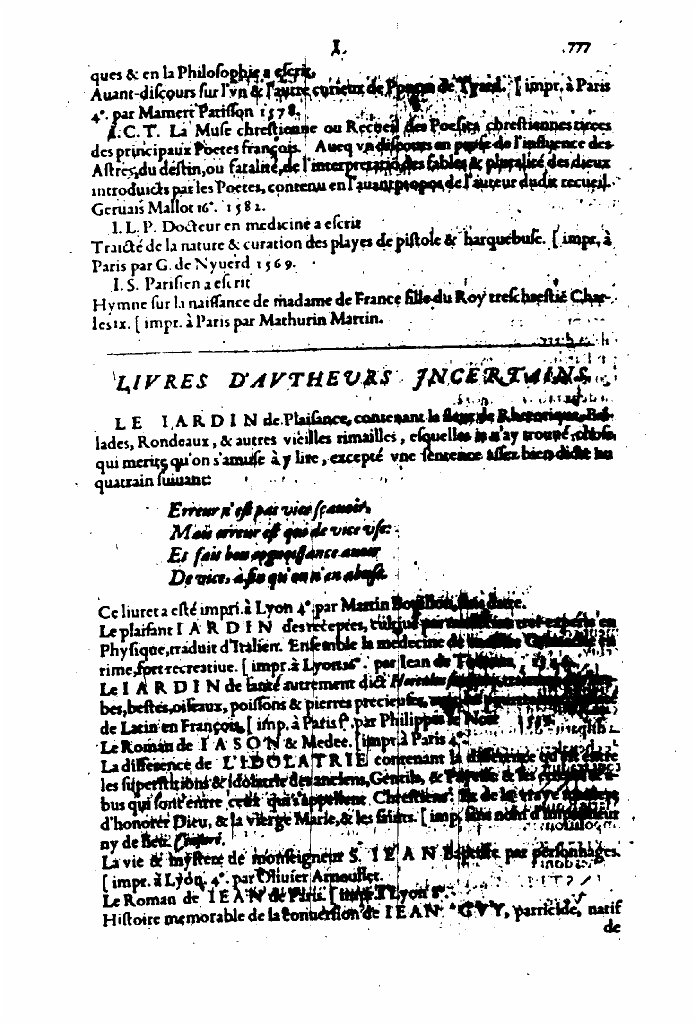 I. 777
ques & en la Philosophie a escrit,
Auant-discours sur l'vn & l'autre curieux de Pontus de Tyard. [ impr. à Paris
4°. par Mamert Patisson 1578.
I.C.T. La Muse chrestienne ou Recueil des Poesies chrestiennes tirees
des principaux Poetes françois. Auec vn discours en prose de l'influence des
Astres, du destin, ou fatalité, de l'interpretatiõ des fables & pluralité des dieux
introduicts par les Poetes, contenu en l'auant propos de l'auteur dudit recueil.
Geruais Mallot 16°. 1582.
I. L. P. Docteur en medicine a escrit
Traicté de la nature & curation des playes de pistole & harquebuse. [ impr. à
Paris par G. de Nyuerd 1569.
I. S. Parisien a escrit
Hymne sur la naissance de madame de France fille du Roy treschrestié Char-
les ix. [ impr. à Paris par Mathurin Martin.
LIVRES D'AVTHEVRS INCERTAINS.
LE IARDIN de Plaisance, contenant la fleur de Rhetorique, Bal-
lades, Rondeaux, & autres vieilles rimailles, esquelles ie n'ay trouué chose
qui merite qu'on s'amuse à y lire, excepté vne sentence assez bien dicte au
quatrain suiuant:
Erreur n'est pas vice sçauoir,
Mais erreur est que de vice vser:
Et fait bon auoir
De vice, à fin qu'on n'en abuse.
Ce liuret a esté impri. à Lyon 4°. par Martin Boullon, sans datte.
Le plaisant IARDIN des receptes, expertz en
Physique, traduit d'Italien. Ensemble la medecine de en
rime, fort recreatiue. [ impr. à Lyon 16°. par Iean de Tournes,
Le IARDIN de santé autrement dict
bes, bestes, oiseaux, poissons & pierres precieuses,
de Latin en François, [ imp. à Paris f°. par Philippes le Noir
Le Roman de IASON & Medee. [ impr. à Paris 4°.
La difference de L'IDOLATRIE contenant la difference qu'est entre
les superstitions & idolatrie des anciens, Gentils, & &
bus qui sont entre ceux qui s'appellent Chrestiens: de la vraye
d'honorer Dieu, & la vierge Marie, & les saints. [ imp. sans nom d'Imprimeur
ny de lieu. Censuré.
La vie & mystere de monseigneur S. IEAN Baptiste par personnages.
[ impr. à Lyon, 4°. par Oliuier Arnoullet.
Le Roman de IEAN de Paris. [ impr. à Lyon 8°.
Histoire memorable de la conuersion de IEAN GVY, parricide, natif
de